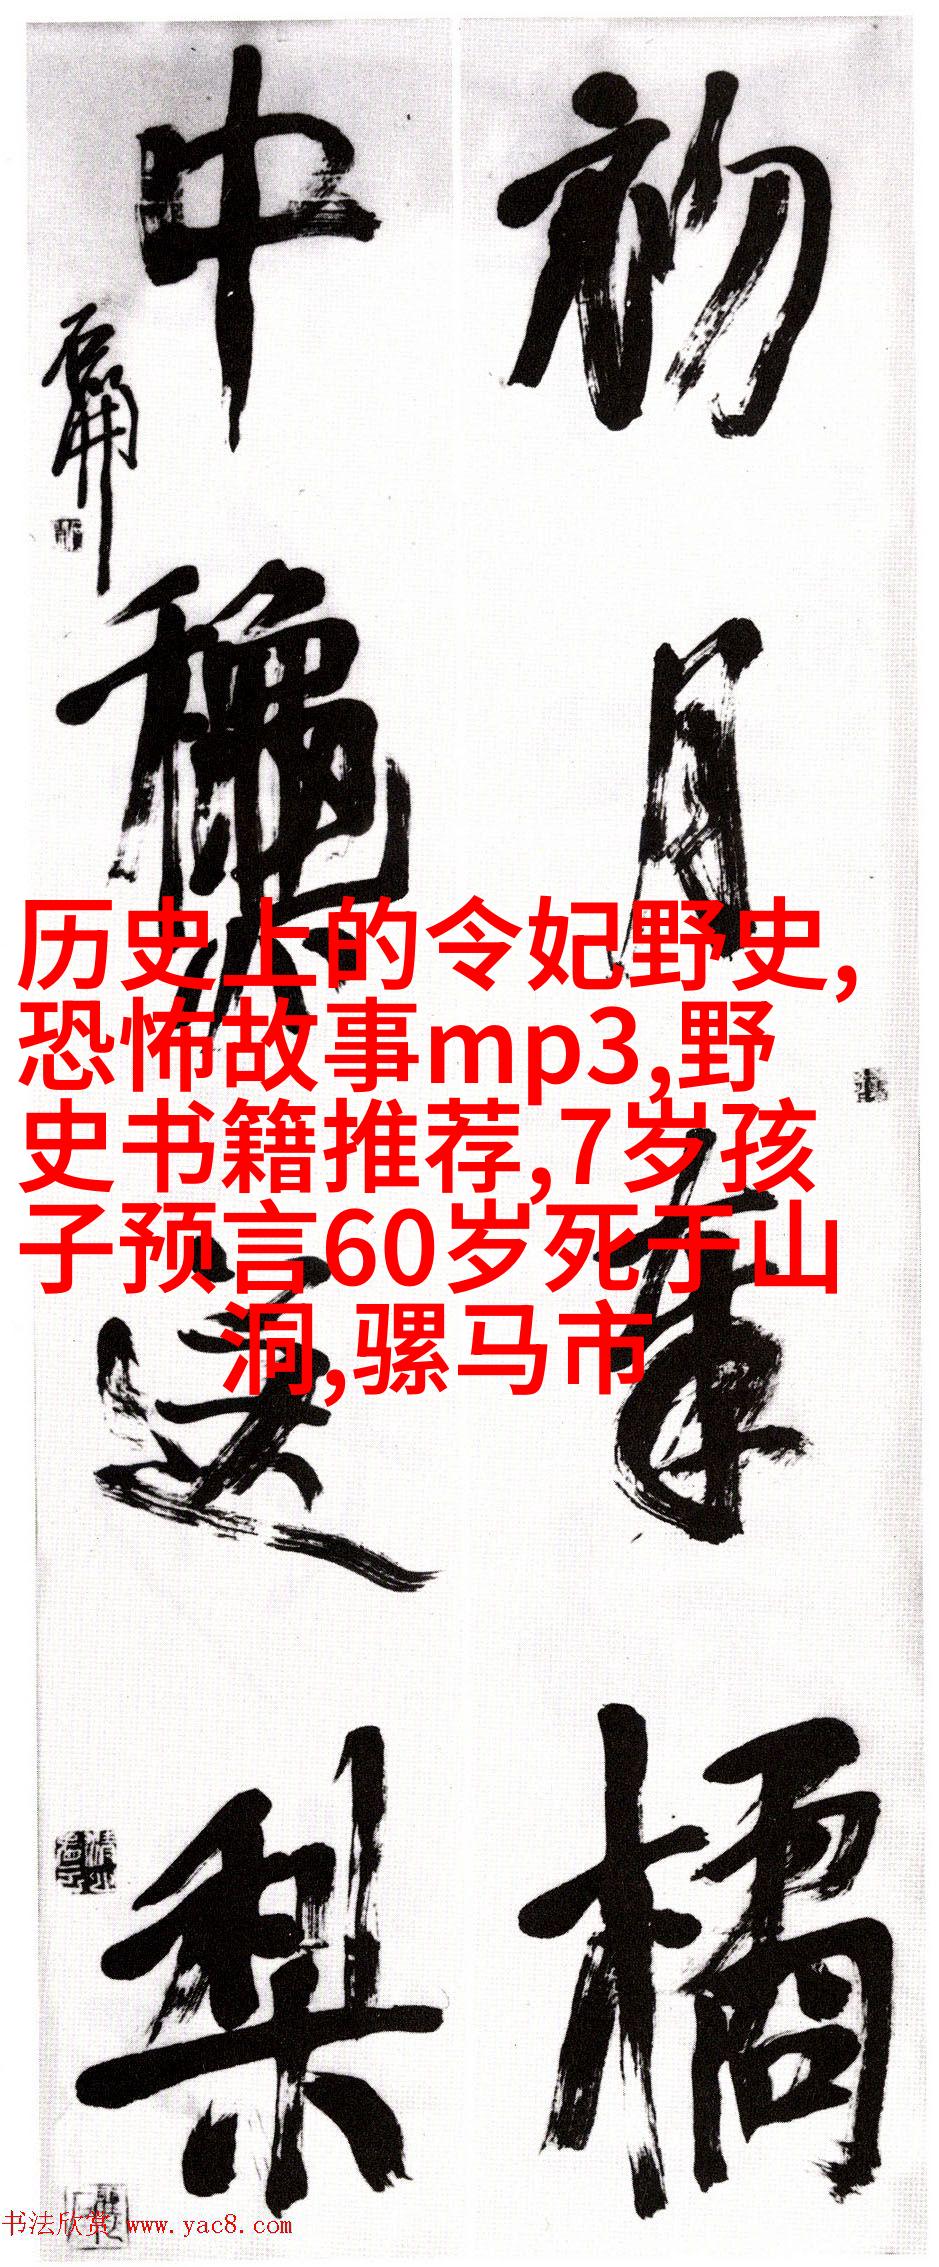 初月奉橘
中龝送梨
历史上的令妃野史,
恐怖故事mp3,野
史书籍推荐,7岁孩
子预言60岁死于山
洞,骡马市
书法欣赏 www.yac8.com